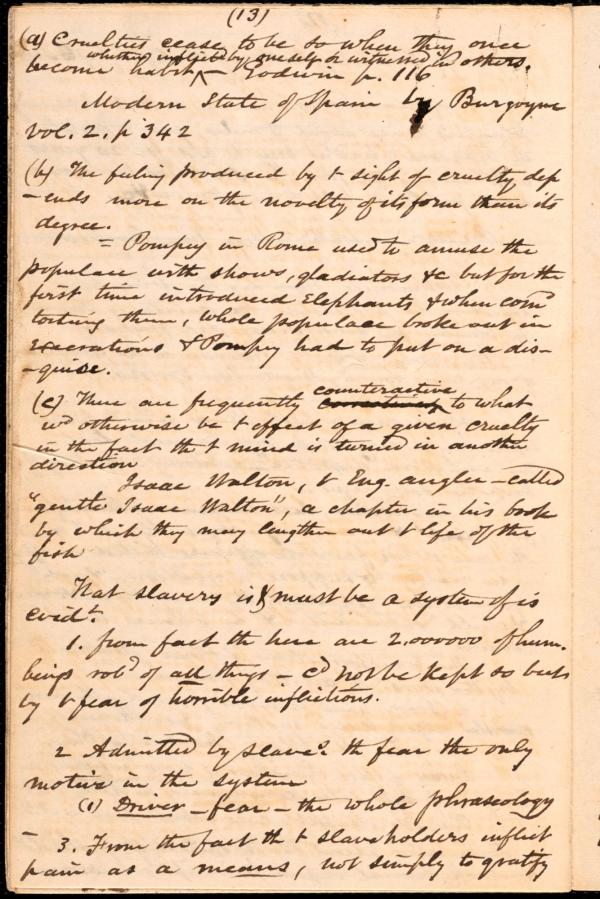 (13)
(a) Cruelties cease to be so when they once
whether inflicted by oneself or witnessed in others.
become habit ^ – Godwin p. 116
Modern State of Spain by Burgoyne
vol. 2. p 342
(b) The feeling produced by t sight of cruelty dep
-ends more on the novelty of its form than its
degree.
= Pompey in Rome used to amuse the
populace with shows, gladiators &c but for the
first time introduced Elephants, & when comd
torturing them, whole populace broke out in
execrations & Pompey had to put on a dis-
-guise.
counteractive
(c) There are frequently to what
wd otherwise be t effect of a given cruelty
in the fact tht mind is turned in another
direction
Isaac Walton, t Eng. angler – called
"gentle Isaac Walton", a chapter in his book
by which they may lengthen out t life of the
fish
That slavery is & must be a system of is
evidt.
1. from fact th here are 2.000000 of hum.
beings robd of all things – cd not be kept so but
by t fear of horrible inflictions.
2 Admitted by slaves. th fear the only
motive in the system
(1) Driver – fear – the whole phraseology
– 3. From the fact th t slaveholders inflict
pain as a means, not simply to gratify